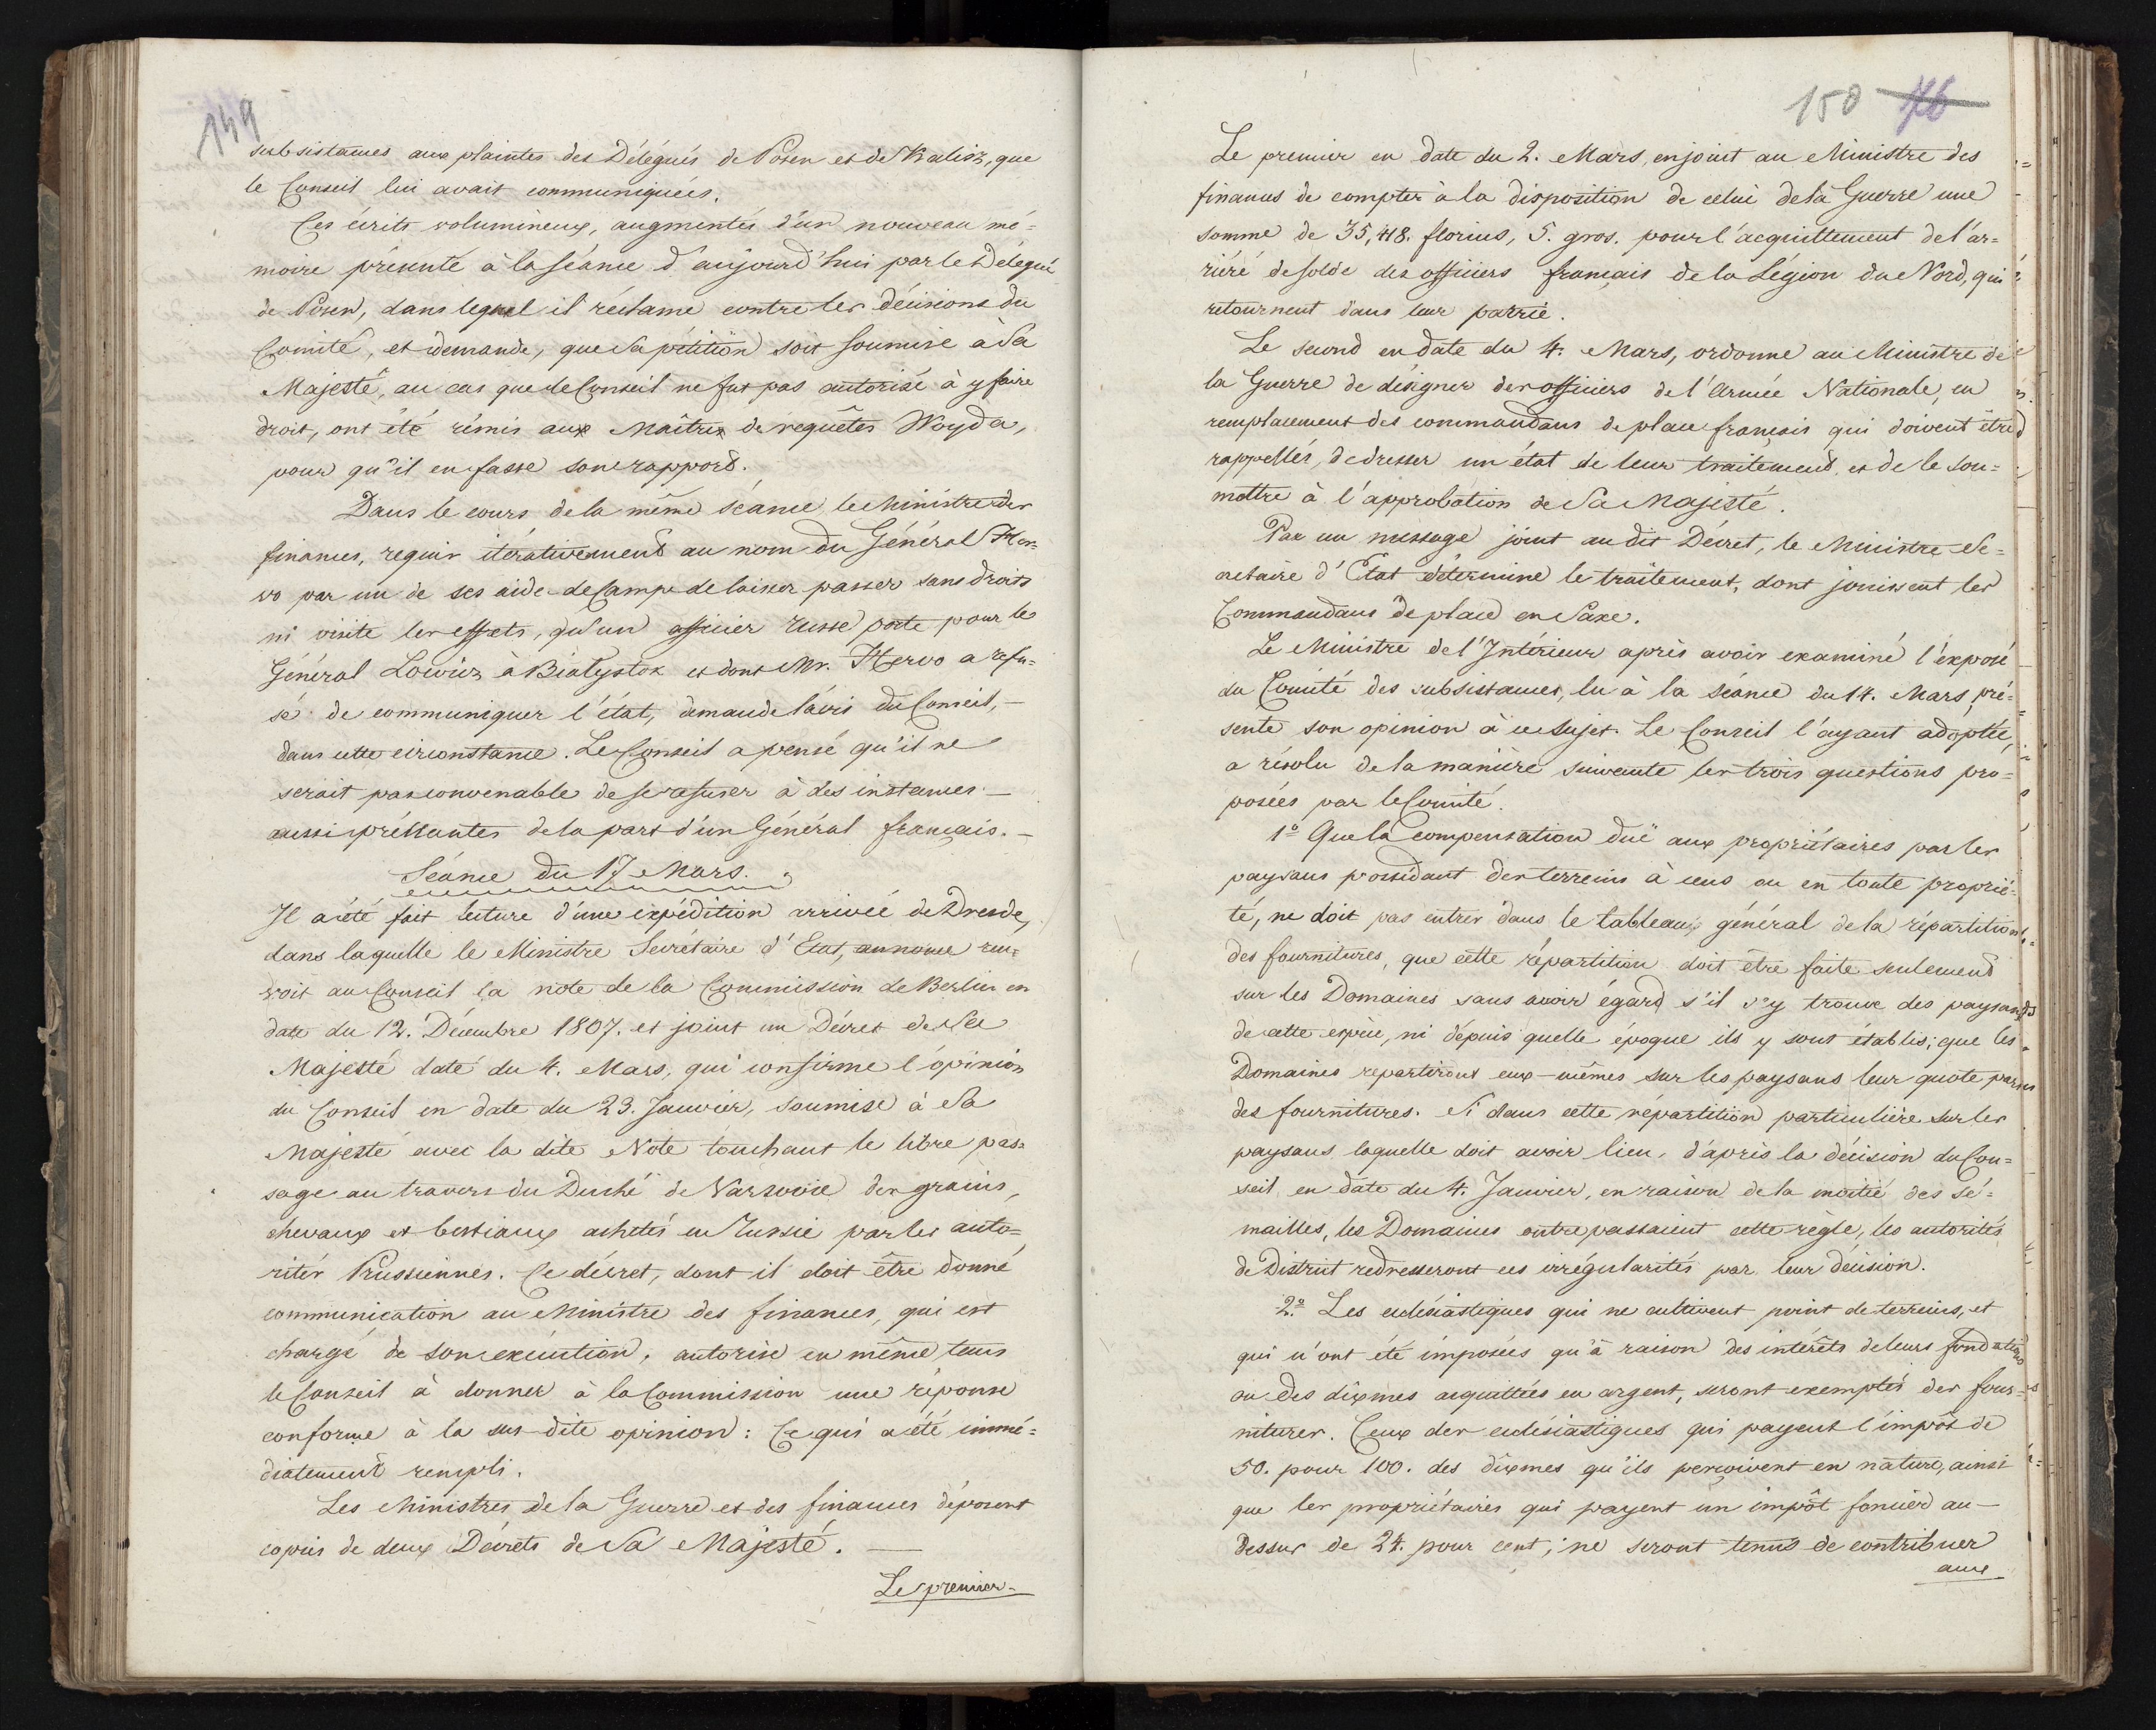 149
subsistances aux plaintes des Délégués de Posen et de Kalisz, que
le Conseil lui avait communiquées.
Ces écrits volumineux, augmentés d'un nouveau mé=
moire présenté à la séance d'aujourd'hui par le Délégué
de Posen, dans lequel il réclame contre les décisions du
Comité, et demande, que sa pétition soit soumise à Sa
Majesté, au cas que le Conseil ne fut pas autorisé à y faire
droit, ont été rémis aux Maîtres de requêtes Woyda,
pour qu'il en fasse son rapport.
Dans le cours de la même séance, le Ministre des
finances, requis itérativement au nom du Général Her=
vo par un de ses aides de Camp de laisser passer sans droits
ni visite les effets, qu'un officier russe porte pour le
Général Lowicz à Białystok et dont Mr. Hervo a refu=
sé de communiquer l'état, demande l'avis du Conseil, —
dans cette circonstance. Le Conseil a pensé qu'il ne
serait pas convenable de se refuser à des instances —
aussi préssantes de la part d'un Général français. —
Séance du 17 Mars.
Il a été fait lecture d'une expédition arrivée de Dresde,
dans laquelle le Ministre Secrétaire d'Etat, annonce ren=
voit au Conseil la note de la Commission de Berlin en
date du 12. Décembre 1807. et joint un Décret de Sa
Majesté daté du 4. Mars, qui confirme l'opinion
du Conseil en date du 23. Janvier, soumise à Sa
Majesté avec la dite Note touchant le libre pas=
sage au travers du Duché de Varsovie des grains,
chevaux et bestiaux achetés en Russie par les auto=
rités Prussiennes. Ce décret, dont il doit être donné
communication au Ministre des finances, qui est
chargé de son exécution, autorise en même tems
le Conseil à donner à la Commission une réponse
conforme à la sus-dite opinion: Ce qui a été immé=
diatement rempli.
Les Ministres de la Guerre et des finances déposent
copies de deux Décrets de Sa Majesté. —
Le premier
150 76
Le premier en date du 2. Mars, enjoint au Ministre des
finances de compter à la disposition de celui de la Guerre une
somme de 35,418. florins, 5. gros. pour l'acquittement de l'ar=
riéré de solde des officiers français de la Légion du Nord, qui
retournent dans leur patrie.
Le second en date du 4. Mars, ordonne au Ministre de
la Guerre de désigner des officiers de l'Armée Nationale, en
remplacement des commandans de place français qui doivent être
rappellés, de dresser un état de leur traitement, et de le sou=
mettre à l'approbation de Sa Majesté.
Par un message joint au dit Décret, le Ministre Se=
cretaire d'Etat détermine le traitement, dont jouissent les
Commandans de place en Saxe.
Le Ministre de l'Intérieur après avoir examiné l'exposé
du Comité des subsistances, lu à la séance du 14. Mars, pré=
sente son opinion à ce sujet. Le Conseil l'ayant adoptée,
a résolu de la manière suivante les trois questions pro=
posées par le Comité.
1º Que la compensation duë aux propriétaires par les
paysans possédant des terreins à cens ou en toute proprié=
té, ne doit pas entrer dans le tableau général de la répartition
des fournitures, que cette répartition doit être faite seulement
sur les Domaines sans avoir égard s'il s'y trouve des paysans
de cette espèce, ni dépuis quelle époque ils y sont établis; que les
Domaines repartiront eux-mêmes sur les paysans leur quote part
des fournitures. Si dans cette répartition particulière sur les
paysans laquelle doit avoir lieu, d'après la décision du Con=
seil en date du 4. Janvier, en raison de la moitié des sé=
mailles, les Domaines outrepassaient cette règle, les autorités
de District redresseront ces irrégularités par leur décision.
2º Les ecclésiastiques qui ne cultivent point de terreins, et
qui n'ont été imposés qu'à raison des intérêts de leurs fondations
ou des dixmes acquittées en argent, seront exemptés des four=
nitures. Ceux des ecclésiastiques qui payent l'impôt de
50. pour 100. des dixmes qu'ils perçoivent en nature, ainsi
que les propriétaires qui payent un impôt foncier au—
dessus de 24. pour cent; ne seront tenus de contribuer
aux